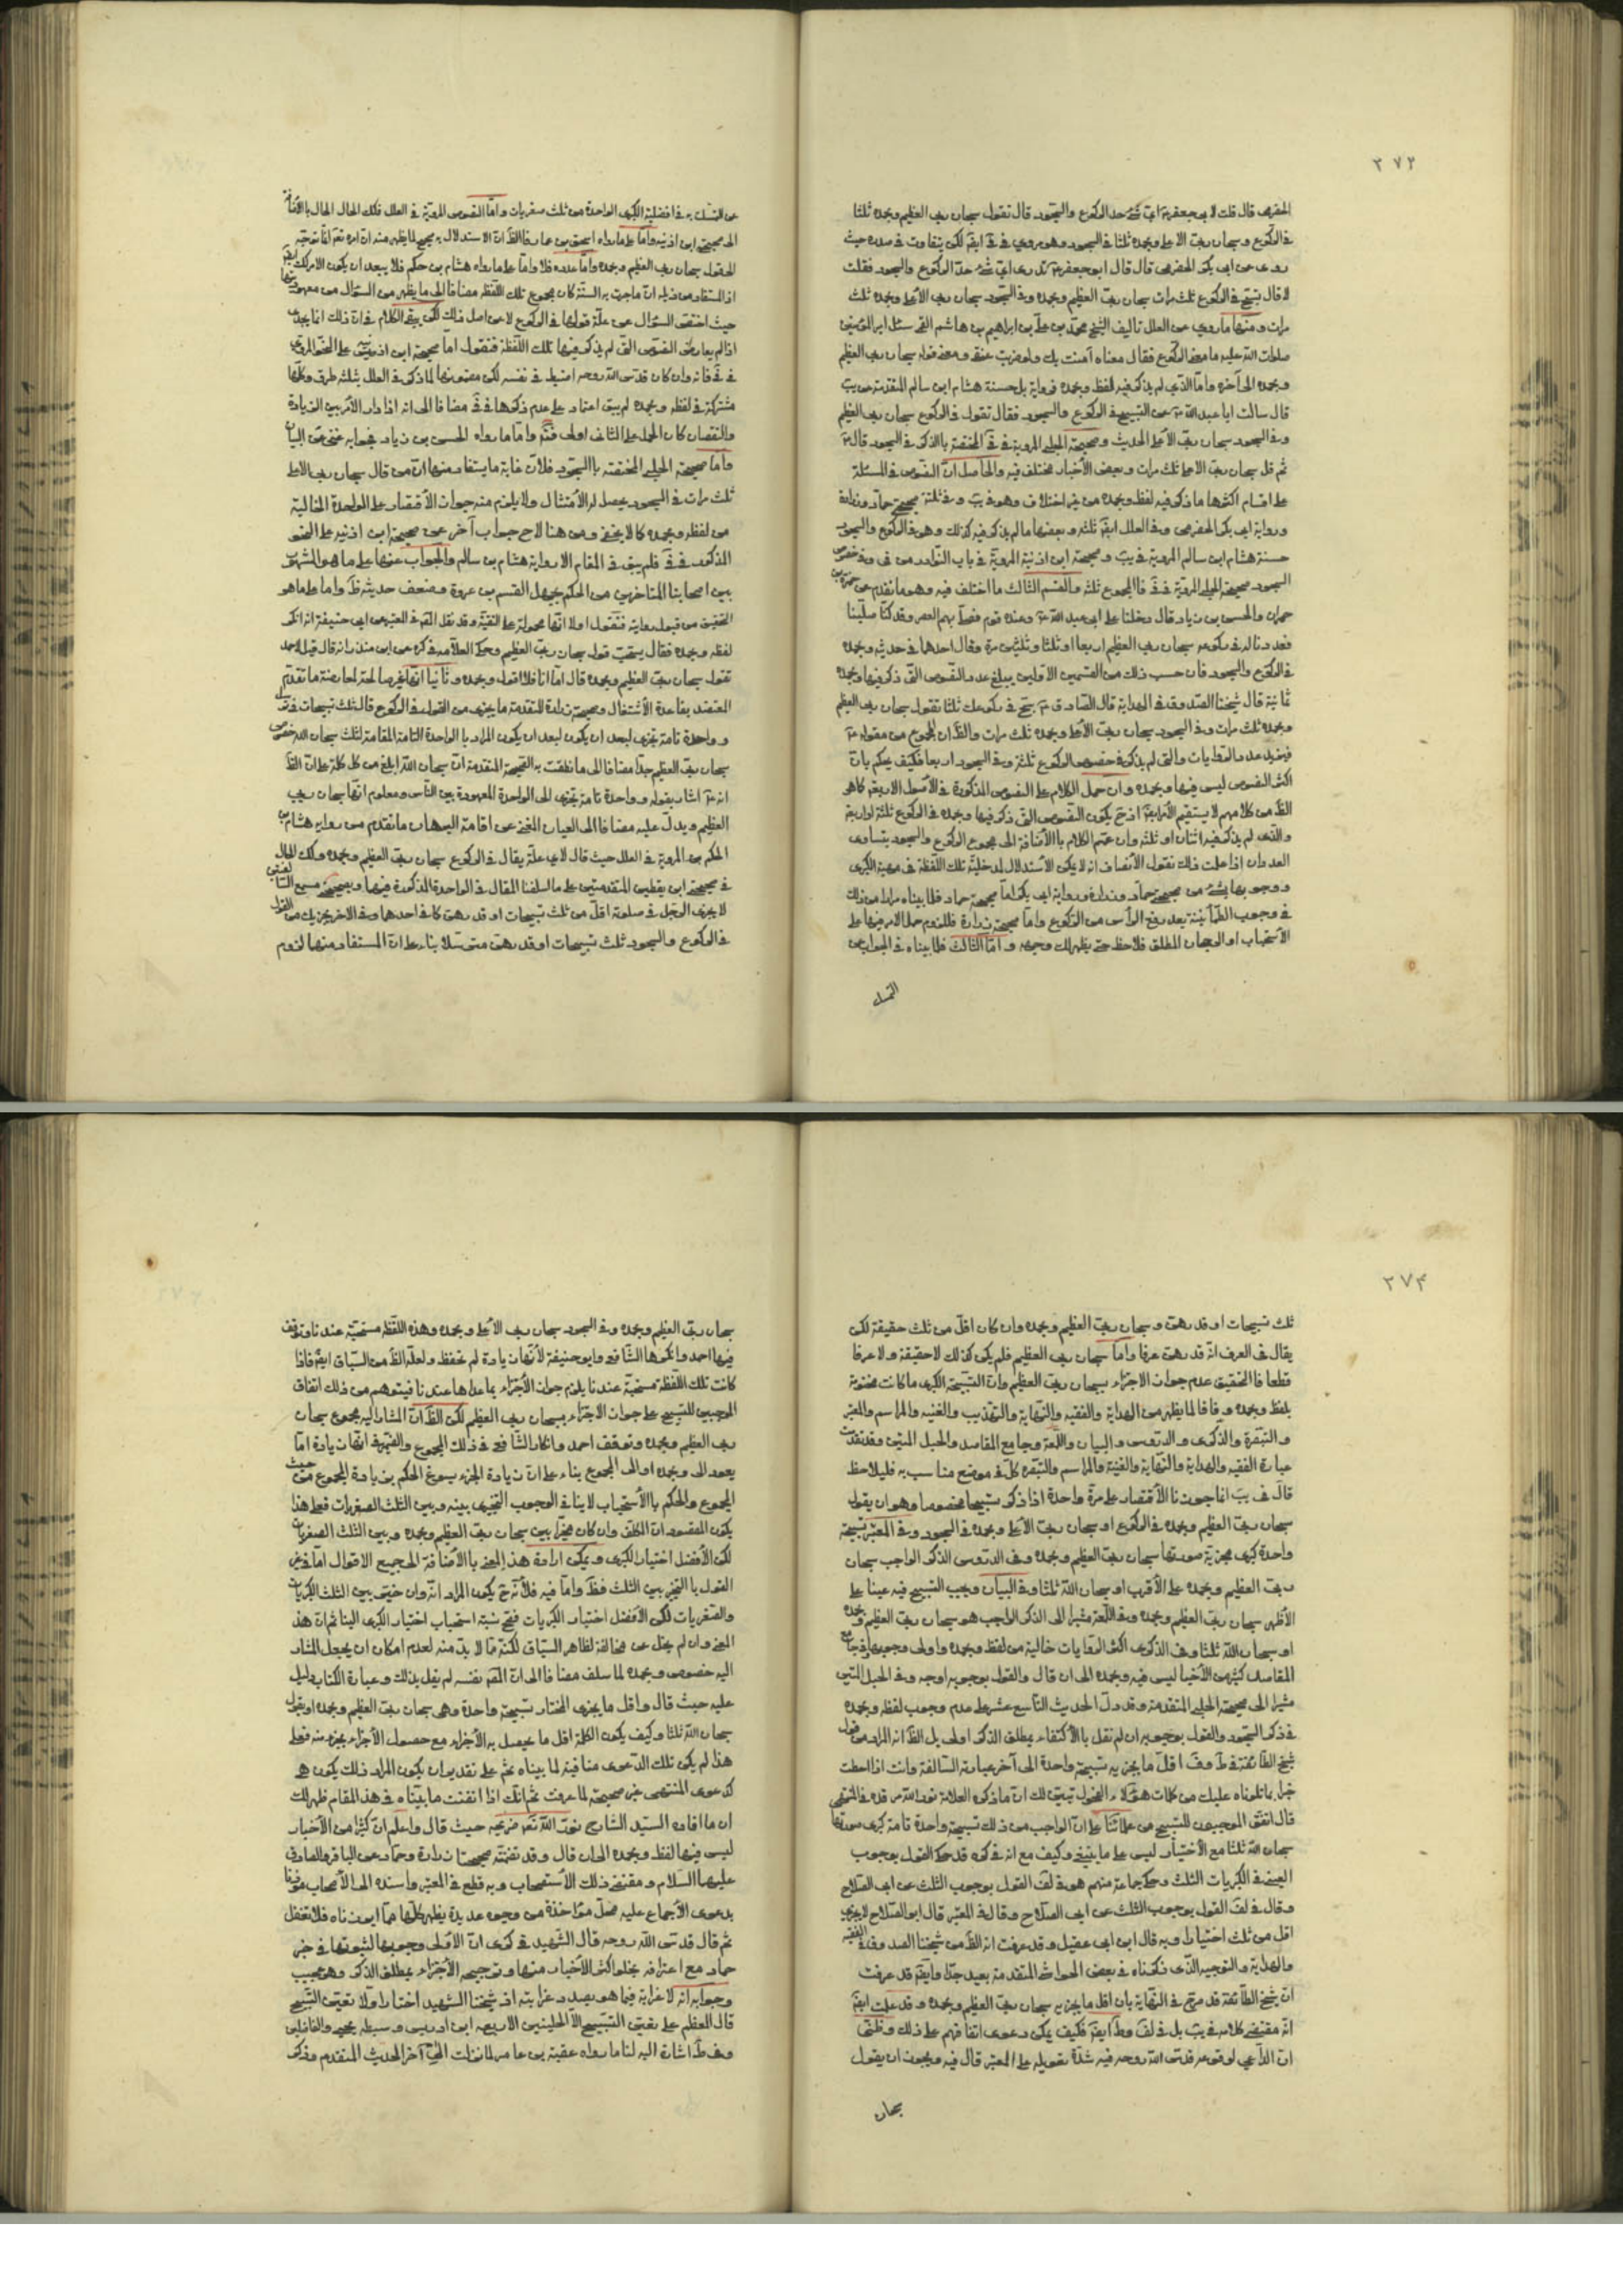 ٢٧٣
الحضرمي قال قلت لابي جعفر ع اي شئ حد الركوع والسجود قال تقول سبحان ربي العظيم وبحمده ثلثا
في الركوع وسبحان ربي الاعلى وبحمده ثلثا في السجود وهو مروي في في ايضا لكن بتفاوت في صدره حيث
روى عن ابي بكر الحضرمي قال قال ابو جعفر ع تدري اي شئ حد الركوع والسجود فقلت
لا قال تسبح في الركوع ثلث مرات سبحان ربي العظيم وبحمده وفي السجود سبحان ربي الاعلى وبحمده ثلث
مرات ومنها ما روي عن العلل تأليف الشيخ محمد بن علي بن ابراهيم بن هاشم القمي سئل امير المؤمنين
صلوات الله عليه ما معنى الركوع فقال معناه آمنت بك ولو ضربت عنقي ومعنى قوله سبحان ربي العظيم
وبحمده الى آخره واما الذي لم يذكر فيه لفظ وبحمده فرواية بل حسنة هشام ابن سالم المتقدمة عن يب
قال سالت ابا عبد الله ع عن التسبيح في الركوع والسجود فقال تقول في الركوع سبحان ربي العظيم
وفي السجود سبحان ربي الاعلى الحديث وصحيحة الحلبي المروية في في المختصة بالذكر في السجود قال ع
ثم قل سبحان ربي الاعلى ثلث مرات وبعض الأخبار مختلف فيه والحاصل ان النصوص في المسئلة
على اقسام اكثرها ما ذكر فيه لفظ وبحمده من غير اختلاف وهو في يب وفي ثلثة صحيحتي حماد وزرارة
ورواية ابي بكر الحضرمي وفي العلل ايضا ثلثة وبعضها ما لم يذكر فيه كذلك وهي في الركوع والسجود
حسنة هشام ابن سالم المروية في يب وصحيحة ابن اذينة المروية في باب النوادر من في وفي خصوص
السجود صحيحة الحلبي المروية في في فالمجموع ثلثة والقسم الثالث ما اختلف فيه وهو ما تقدم عن حمزة بن
حمران والحسن بن زياد قال دخلنا على ابي عبد الله ع وعنده قوم فصلى بهم العصر وقد كنا صلينا
فعددنا له في ركوعه سبحان ربي العظيم اربعا او ثلثا وثلثين مرة وقال احدهما في حديثه وبحمده
في الركوع والسجود فان حسب ذلك من القسمين الأولين يبلغ عدد النصوص التي ذكر فيها وبحمده
ثمانية قال شيخنا الصدوق في الهداية قال الصادق ع سبح في ركوعك ثلثا تقول سبحان ربي العظيم
وبحمده ثلث مرات وفي السجود سبحان ربي الأعلى وبحمده ثلث مرات والظ ان المجموع من مقوله ع
فيزيد عدد الروايات والتي لم يذكر في خصوص الركوع ثلثة وفي السجود اربعا فكيف يحكم بان
اكثر النصوص ليس فيها وبحمده وان حمل الكلام على النصوص المذكورة في الأصول الاربعة كما هو
الظ من كلامهم لا يستقيم الأمر ايضا اذ ح يكون النصوص التي ذكر فيها وبحمده في الركوع ثلثة او اربعة
والذي لم يذكر فيه اثنان او ثلثة وان عمم الكلام بالأضافة الى مجموع الركوع والسجود يتساوى
العددان اذا علمت ذلك نقول الأنصاف انه لا يمكن الأستدلال لمدخلية تلك اللفظة في مهية الكبرى
ووجوبها بشئ من صحيحتي حماد وزرارة ورواية ابي بكر اما صحيحة حماد فلما بيناه مرارا من ذلك
في وجوب الطمأنينة بعد رفع الرأس من الركوع واما صحيحة زرارة فللزوم حمل الامر فيها على
الأستحباب او الرجحان المطلق فلاحظ حتى يظهر لك وجهه واما الثالث فلما بيناه في الجواب عن
التمسك
عن التمسك به في افضلية الكبرى الواحدة من ثلث صغريات واما النصوص المروية في العلل فلك الحال الحال بالأضافة
الى صحيحة ابن اذينة واما على ما رواه اسحق بن عمار فالظ ان الاستدلال به صحيح لما يظهر منه ان امره تعم انما توجه
الى قول سبحان ربي العظيم وبحمده واما عدده فلا واما على ما رواه هشام بن حكم فلا يبعد ان يكون الامر كذلك ايضا
اذ المستفاد من ذيله ان ما جرت به السنة كان مجموع تلك اللفظة مضافا الى ما يظهر من السؤال من معهوديتها
حيث اختص السؤال عن علة قولها في الركوع لا عن اصل ذلك لكن بقي الكلام في ان ذلك انما يجدي
اذا لم يعارض النصوص التي لم يذكر فيها تلك اللفظة فنقول اما صحيحة ابن اذينة على النحو المروي
في في فانه وان كان قدس الله روحه اضبط في نفسه لكن مضمونها لما ذكر في العلل بثلثه طرق وكلها
مشتركة في لفظه وبحمده لم يبق اعتماد على عدم ذكرها في في مضافا الى انه اذا دار الأمر بين الزيادة
والنقصان كان الحمل على الثاني اولى واما ما رواه الحسن بن زياد فجوابه غني عن البيان
واما صحيحة الحلبي المختصة بالسجود فلان غاية ما يستفاد منها ان من قال سبحان ربي الاعلى
ثلث مرات في السجود يحصل له الأمتثال ولا يلزم منه جواز الأقتصار على الواحدة الخالية
من لفظ وبحمده كما لا يخفى ومن هنا لاح جواب آخر عن صحيحة ابن اذنيه على النحو
المذكور في في فلم يبق في المقام الا رواية هشام بن سالم والجواب عنها على ما هو المشهور
بين اصحابنا المتاخرين من الحكم بجهل القسم بن عروة وضعف حديثه ظ واما على ما هو
التحقيق من قبول روايته فنقول اولا انها محمولة على التقية وقد نقل المص في المعتبر عن ابي حنيفة انه انكر
لفظ وبحمده فقال يستحب قول سبحان ربي العظيم وحكى العلامة في كره عن ابن منذر انه قال قيل لاحمد
تقول سبحان ربي العظيم وبحمده قال اما انا فلا اقول وبحمده وثانيا انها غير صالحة لمعارضة ما تقدم
المعتضد بقاعدة الأشتغال وصحيحة زرارة المتقدمة ما يجزي من القول في الركوع قال ثلث تسبيحات في ترسل
وواحدة تامة تجزي لبعد ان يكون لبعد ان يكون المراد بالواحدة التامة المقام لثلث سبحان الله خصوص
سبحان ربي العظيم جدا مضافا الى ما نطقت به الصحيحة المتقدمة ان سبحان الله ابلغ من كل كلمة على ان الظ
انه ع اشار بقوله وواحدة تامة تجزي الى الواحدة المعهودة بين الناس ومعلوم انها سبحان ربي
العظيم ويدل عليه مضافا الى العيان المغني عن اقامة البرهان ما تقدم من رواية هشام بن
الحكم بن المروية في العلل حيث قال لاي علة يقال في الركوع سبحان ربي العظيم وبحمده ولك الحال
في صحيحة ابن يقطين المتقدمتين على ما اسلفنا المقال في الواحدة المذكورة فيها وبصحيحة مسمع السا
لا يجزي الرجل في صلوته اقل من ثلث تسبيحات او قدرهن كما في احدهما وفي الاخر يجزيك من القول
في الركوع والسجود ثلث تسبيحات او قدرهن مترسلا بناء على ان المستفاد منها لزوم
٢٧٤
ثلث تسبيحات او قدرهن وسبحان ربي العظيم وبحمده وان كان اقل من ثلث حقيقة لكن
يقال في العرف انه قدرهن عرفا واما سبحان ربي العظيم فلم يكن كذلك لا حقيقة ولا عرفا
قطعا فالتحقيق عدم جواز الاجتزاء بسبحان ربي العظيم وان التسبيحة الكبرى ما كانت مختومة
بلفظ وبحمده وفاقا لما يظهر من الهداية والفقيه والنهاية والتهذيب والغنيه والمراسم والمعتبر
والتبصرة والذكرى والدروس والبيان واللمعة وجامع المقاصد والحبل المتين وقد تقدمت
عبارة الفقيه والهداية والنهاية والغنية والمراسم والتبصره كل في موضع مناسب به فليلاحظ
قال في يب انما جوزنا الأقتصار على مرة واحدة اذا ذكر تسبيحا مخصوصا وهو ان يقول
سبحان ربي العظيم وبحمده في الركوع او سبحان ربي الأعلى وبحمده في السجود وفي المعتبر تسبيحة
واحدة كبرى مجزية صورتها سبحان ربي العظيم وبحمده وفي الدروس الذكر الواجب سبحان
ربي العظيم وبحمده على الأقرب او سبحان الله ثلثا وفي البيان ويجب التسبيح فيه عينا على
الأظهر سبحان ربي العظيم وبحمده وفي اللمعة مشيرا الى الذكر الواجب هو سبحان ربي العظيم وبحمده
او سبحان الله ثلثا وفي الذكرى اكثر الروايات خالية من لفظ وبحمده واولى وجوبها وفي جامع
المقاصد كثير من الأخبار ليس فيه وبحمده الى ان قال والقول بوجوبه اوجه وفي الحبل المتين
مشيرا الى صحيحة الحلبي المتقدمة وقد دل الحديث التاسع عشر على عدم وجوب لفظ وبحمده
في ذكر السجود والقول بوجوبه ان لم نقل بالأكتفاء بمطلق الذكر اولى بل الظ انه المراد من قول
شيخ الطائفة في ط وف اقل ما يجزيه تسبيحة واحدة الى آخر عبارته السالفة وانت اذا احطت
خبرا بما تلوناه عليك من كلمات هؤلاء الفحول تبين لك ان ما ذكره العلامة نور الله مرقده في المنتهى
قال اتفق الموجبون للتسبيح من علمائنا على ان الواجب من ذلك تسبيحة واحدة تامة كبرى صورتها
سبحان الله ثلثا مع الأختيار ليس على ما ينبغي وكيف مع انه في كره قد حكى القول بوجوب
العين في الكبريات الثلث وحكي جماعة منهم هو في لف القول بوجوب الثلث عن ابي الصلاح
وقال في لف القول بوجوب الثلث عن ابي الصلاح وقال في المعتبر قال ابو الصلاح لا يجزي
اقل من ثلث اختيارا وبه قال ابن ابي عقيل وقد عرفت انه الظ من شيخنا الصدوق في الفقيه
والهداية والتوجيه الذي ذكرناه في بعض الحواشي المتقدمة بعيد جدا وايضا قد عرفت
ان شيخ الطائفة قد صرح في النهاية بان اقل ما يجزيه سبحان ربي العظيم وبحمده وقد علمت ايضا
انه مقتضى كلامه في يب بل في لف وط ايضا فكيف يمكن دعوى اتفاقهم على ذلك وظني
ان الداعي لوقوعه قدس الله روحه فيه شدة تعويله على المعتبر قال فيه ويجوز ان يقول
سبحان
سبحان ربي العظيم وبحمده وفي السجود سبحان ربي الأعلى وبحمده وهذه اللفظه مستحبة عندنا وتوقف
فيها احمد وانكرها الشافعي وابو حنيفة لأنها زيادة لم تحفظ ولعله الظ من السياق ايضا فاذا
كانت تلك اللفظة مستحبة عندنا يلزم جواز الأجتزاء بما عداها عندنا فيتوهم من ذلك اتفاق
الموجبين للتسبيح على جواز الاجتزاء بسبحان ربي العظيم لكن الظ ان المشار اليه مجموع سبحان
ربي العظيم وبحمده وتوقف احمد وانكار الشافعي في ذلك المجموع والضمير في انها زيادة اما
يعود الى وبحمده او الى المجموع بناء على ان زيادة الجزء يسوغ الحكم بزيادة المجموع من حيث
المجموع والحكم بالأستحباب لا ينافي الوجوب التخييري بينه وبين الثلث الصغريات فعلى هذا
يكون المقصود ان المكلف وان كان مخيرا بين سبحان ربي العظيم وبحمده وبين الثلث الصغريات
لكن الأفضل اختيار الكبرى ويمكن ارادة هذا المعنى بالأضافة الى جميع الاقوال اما في
القول بالتخيير بين الثلث فظ واما فيه فلأنه ح يكون المراد انه وان خير بين الثلث الكبريات
والصغريات لكن الأفضل اختيار الكبريات فتصح نسبة استحباب اختيار الكبرى الينا ثم ان هذا
المعنى وان لم يخل عن مخالفة لظاهر السياق لكنه مما لا بد منه لعدم امكان ان يجعل المشار
اليه خصوص وبحمده لما سلف مضافا الى ان المص بنفسه لم يقل بذلك وعبارة الكتاب دليل
عليه حيث قال واقل ما يجزي المختار تسبيحة واحدة وهي سبحان ربي العظيم وبحمده او يقول
سبحان الله ثلثا وكيف يكون الكل اقل ما يحصل به الأجزاء مع حصول الأجزاء بجزء منه فعلى
هذا لم يكن تلك الدعوى منافية لما بيناه نعم على تقدير ان يكون المراد ذلك يكون هي
كدعوى المنتهى غير صحيحة لما عرفت ثم انك اذا اتقنت ما بيناه في هذا المقام ظهر لك
ان ما افاده السيد الشارح نور الله تعم ضريحه حيث قال واعلم ان كثيرا من الأخبار
ليس فيها لفظ وبحمده الى ان قال وقد تضمنته صحيحتا زرارة وحماد عن الباقر والصادق
عليهما السلام ومقتضى ذلك الأستحباب وبه قطع في المعتبر واسنده الى الأصحاب مؤذنا
بدعوى الأجماع عليه محل مؤاخذة من وجوه عديدة يظهر كلها مما ابرزناه فلا تغفل
ثم قال قدس الله روحه قال الشهيد في كرى ان الاولى وجوبها لثبوتها في خبر
حماد مع اعترافه بخلو اكثر الأخبار منها وترجيحه الأجتزاء بمطلق الذكر وهو عجيب
وجوابه انه لا غرابة فيما هو بصدد غرابته اذ شيخنا الشهيد اختار اولا تعين التسبيح
قال المعظم على تعين التسبيح الا الحليين الاربعه ابن ادريس وسبطه يحيى والفاضلين
وفي ط اشارة اليه لنا ما رواه عقبة بن عامر لما نزلت الى آخر الحديث المتقدم وذكر